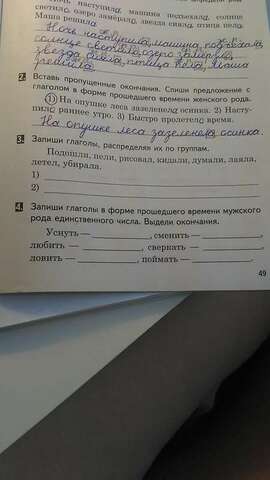 , наступила, машина подъехала, солнце
светило, озеро замёрзло, звезда сияла, птица пела,
Маша решила.
Ночь наступила, машина подъехала,
солнце светило, озеро замёрзло,
звезда сияла, птица пела, Маша
решила.
2. Вставь пропущенные окончания. Спиши предложение с
глаголом в форме прошедшего времени женского рода.
1) На опушке леса зазеленела осинка. 2) Насту-
пило раннее утро. 3) Быстро пролетело время.
На опушке леса зазеленела осинка.
3. Запиши глаголы, распределяя их по группам.
Подошли, пели, рисовал, кидали, думали, лаяла,
летел, убирала.
1)
2)
4. Запиши глаголы в форме прошедшего времени мужского
рода единственного числа. Выдели окончания.
Уснуть — , сменить —
любить — , сверкать — ,
ловить — , поймать — .
49